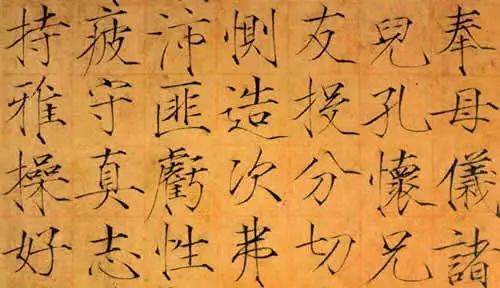 奉母儀諸
兒孔懷兄
友投分切
惻造次弗
沛匪虧性
疲守真志
持雅操好